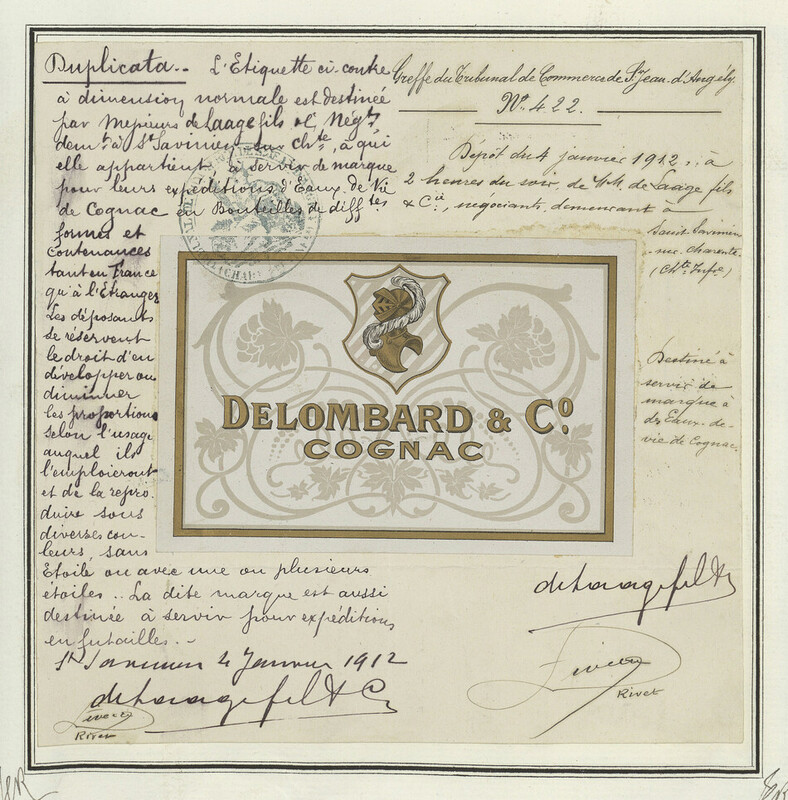 Duplicata.. L'Etiquette ci-contre
à dimension normale est destinée
par Messieurs de Laage fils & Cie Négts
demts à St Savinien sur Chte, à qui
elle appartient à servir de marque
pour leurs expéditions d'Eaux-de-Vie
de Cognac en Bouteilles de difftes
formes et
contenances
tant en France
qu'à l'Etranger
Les déposants
se réservent
le droit d'en
développer ou
diminuer
les proportions
selon l'usage
auquel ils
l'emploieront
et de la repro-
duire sous
diverses cou-
leurs, sans
Etoile ou avec une ou plusieurs
étoiles.. La dite marque est aussi
destinée à servir pour expéditions
en futailles.-
St Savinien 4 Janvier 1912
de Laage fils & Co
Rivet
Greffe du Tribunal de Commerce de St Jean-d'Angély.
No. 422.
Dépôt du 4 janvier 1912, à
2 heures du soir, de M.M. de Laage fils
& Cie, négociants, demeurant à
Saint-Savinien
-sur-Charente
(Chte Infre)
Destiné à
servir de
marque à
des Eaux-de-
vie de Cognac.
DELOMBARD & Co.
COGNAC
de Laage fils & Co
Rivet